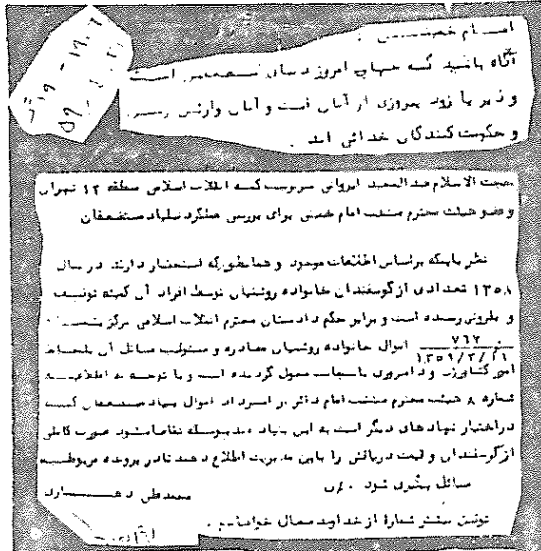 امام خمینی :
آگاه باشید که جهان امروز دنیای مستضعفین است
و دیر یا زود پیروزی از آنان است و آنان وارثین زمین
و حکومت کنندگان خدائی اند .
حجت الاسلام عبدالمجید ایروانی سرپرست کمیته انقلاب اسلامی منطقه ۱۲ تهران
و عضو هیئت محترم منتخب امام خمینی برای بررسی عملکرد بنیاد مستضعفان
نظر باینکه براساس اطلاعات موجود و همانطور که استحضار دارند در سال
۱۳۵۸ تعدادی از گوسفندان خانواده روشنیان توسط افراد آن کمیته توقیف
و بفروش رسیده است و برابر حکم دادستان محترم انقلاب اسلامی مرکز بشماره
۷۶۲
۱۳۵۹/۳/۲۱ اموال خانواده روشنیان مصادره و مسئولیت مسائل آن بلحاظ
امور کشاورزی و دامپروری باینجانب محول گردیده است و با توجه به اطلاعیه
شماره ۸ هیئت محترم منتخب امام دائر بر استرداد اموال بنیاد مستضعفان که
در اختیار نهادهای دیگر است به این بنیاد بدینوسیله تقاضا میشود صورت کاملی
از گوسفندان و قیمت دریافتی را باین مدیریت اطلاع دهند تا در پرونده مربوطه
مسائل پیگیری شود .
توفیق بیشتر شما را از خداوند متعال خواهانیم .